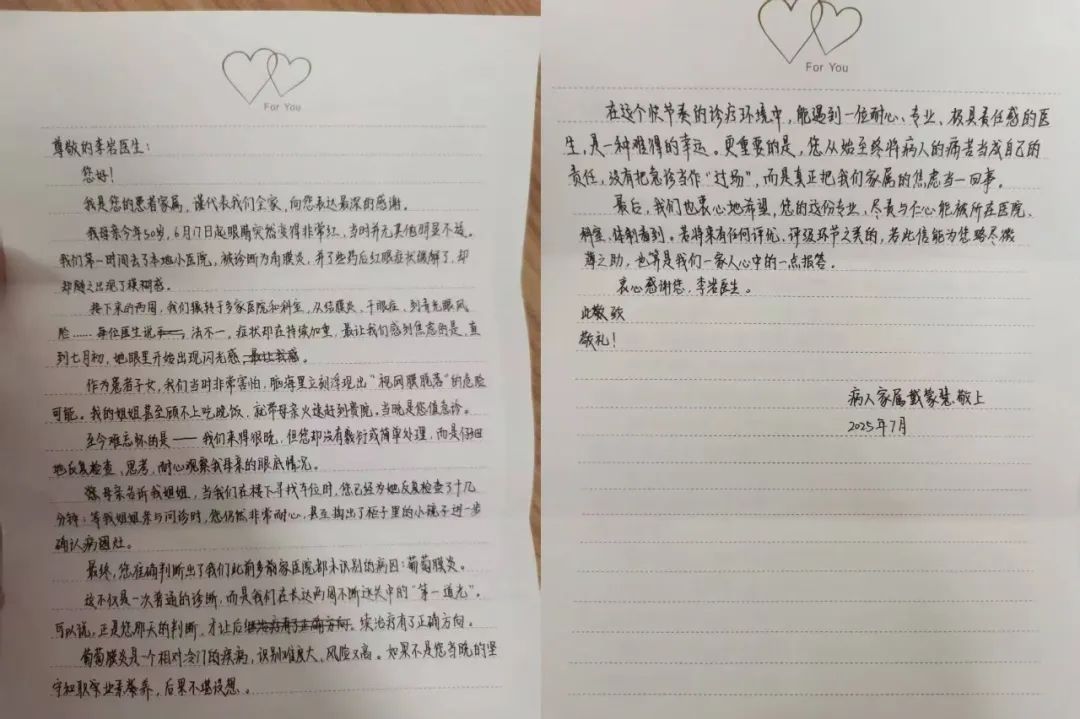 For You
尊敬的李岩医生:
您好!
我是您的患者家属,谨代表我们全家,向您表达最深的感谢。
我母亲今年50岁,6月17日起眼睛突然变得非常红,当时并无其他明显不适。
我们第一时间去了本地小医院,被诊断为角膜炎,开了些药后红眼症状缓解了,却
却随之出现了模糊感。
接下来的两周,我们辗转于多家医院和科室,从结膜炎、干眼症、到青光眼风
险……每位医生说法不一,症状却在持续加重,最让我们感到焦虑的是,直
到七月初,她眼里开始出现闪光感,
作为患者子女,我们当时非常害怕,脑海里立刻浮现出“视网膜脱落”的危险
可能。我的姐姐甚至顾不上吃晚饭,就带母亲火速赶到贵院。当晚是您值急诊。
至今难忘怀的是——我们来得很晚,但您却没有敷衍或简单处理,而是仔细
地反复检查、思考,耐心观察我母亲的眼底情况。
母亲告诉我姐姐,当我们在楼下寻找车位时,您已经为她反复检查了十几
分钟;等我姐姐亲与问诊时,您仍然非常耐心,甚至掏出了柜子里的小镜子进一步
确认病因灶。
最终,您准确判断出了我们此前多家医院都未识别的病因:葡萄膜炎。
这不仅是一次普通的诊断,而是我们在长达两周不断迷失中的“第一道光”。
可以说,正是您那天的判断,才让后续治疗有了正确方向。
葡萄膜炎是个相对冷门的疾病,识别难度大、风险又高。如果不是您当晚的坚
守和职业素养,后果不堪设想。
For You
在这个快节奏的诊疗环境中,能遇到一位耐心、专业、极具责任感的医
生,是一种难得的幸运。更重要的是,您从始至终将病人的痛苦当成自己的
责任,没有把急诊当作“过场”,而是真正把我们家属的焦虑当一回事。
最后,我们也衷心地希望,您的这份专业、尽责与仁心能被所在医院、
科室、体制看到。若将来有任何评优、评级环节之类的,若此信能为您略尽微
薄之助,也算是我们一家人心中的一点报答。
衷心感谢您,李岩医生。
此致
敬礼!
病人家属戴蒙慧敬上
2025年7月